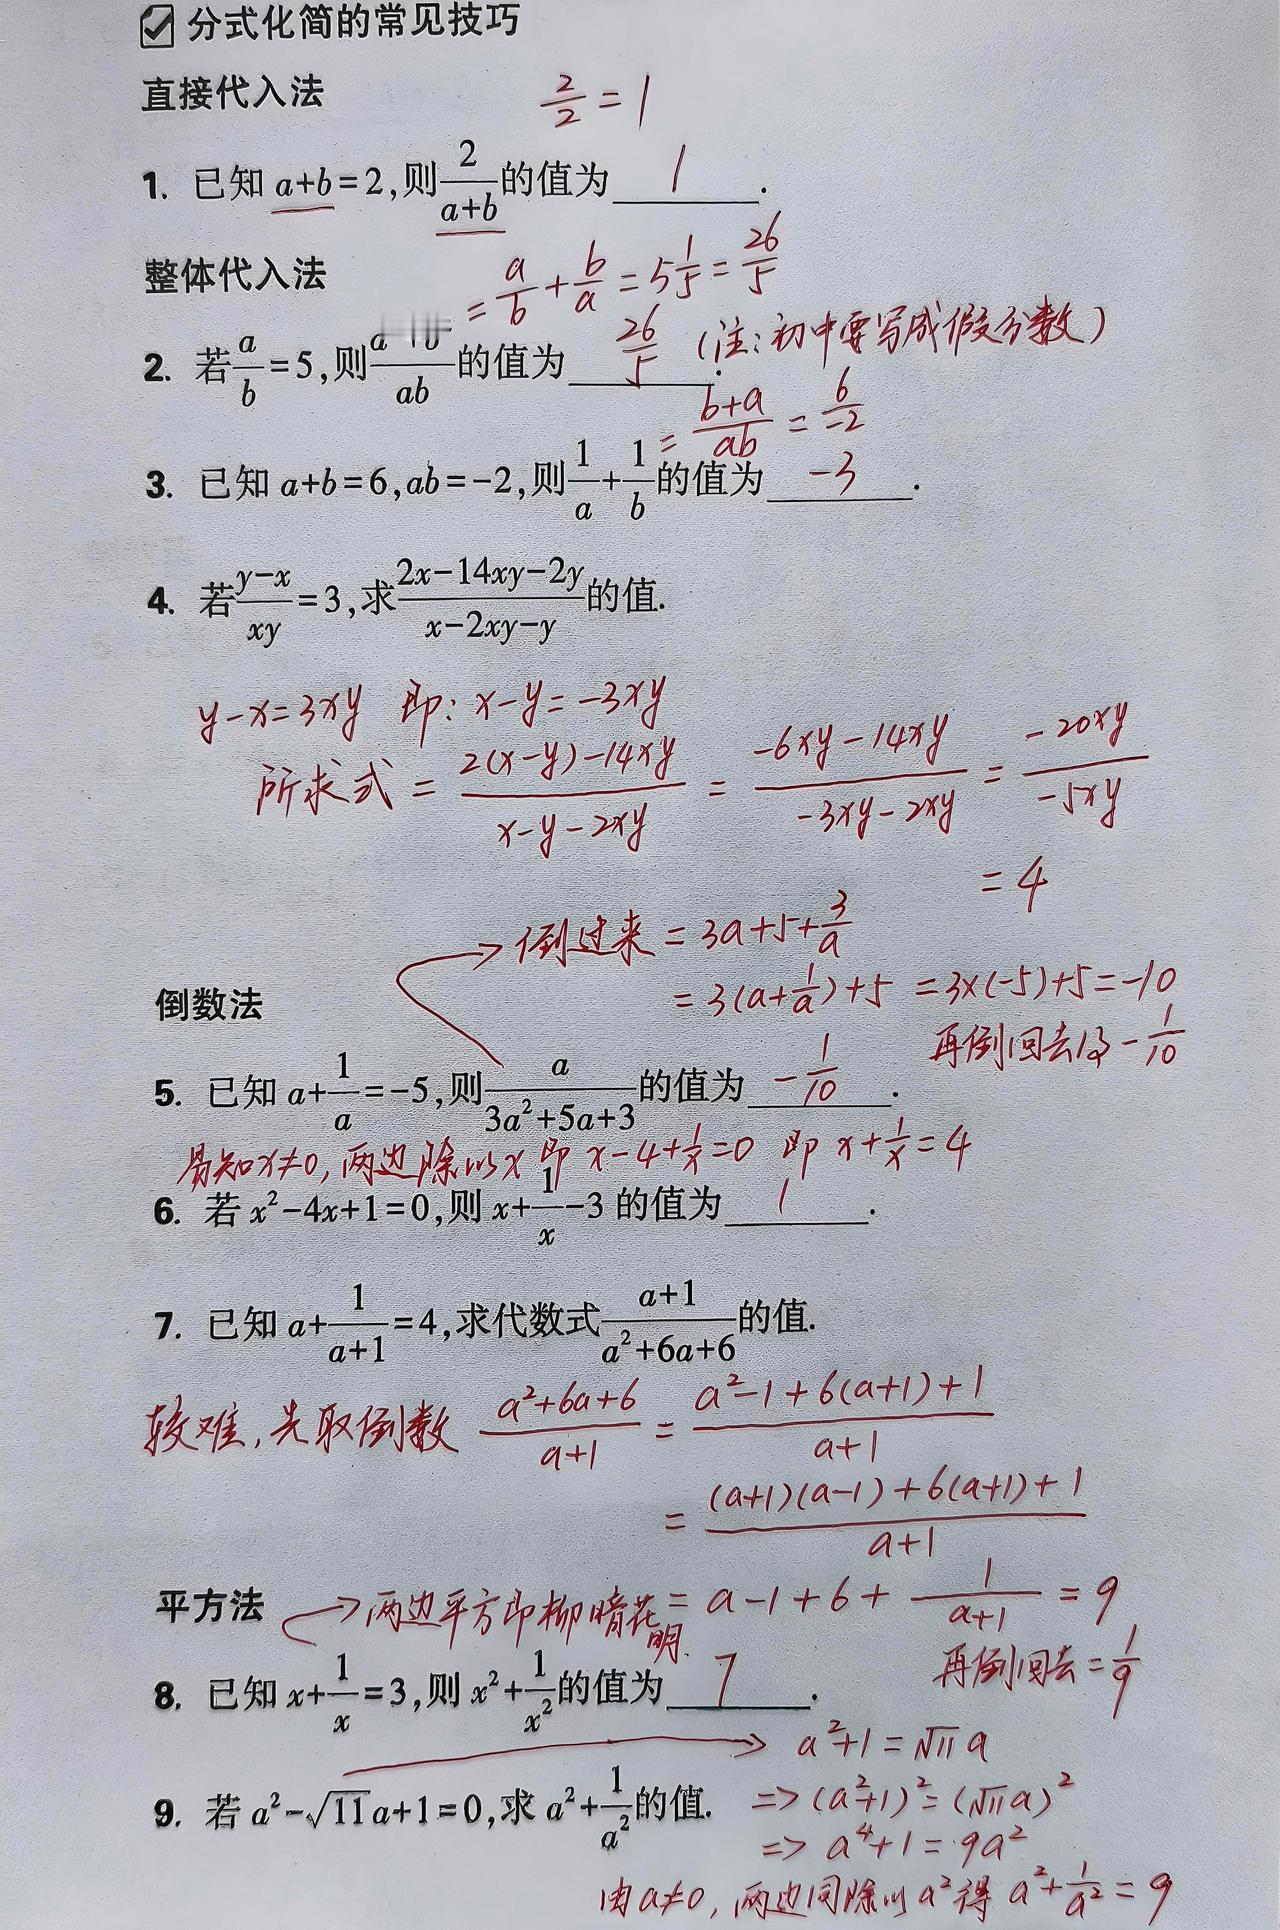 分式化简的常见技巧
直接代入法
2/2 = 1
1. 已知 a+b=2,则 2/(a+b) 的值为 1 .
整体代入法
= a/b + b/a = 5 1/5 = 26/5
2. 若 a/b =5,则 /ab 的值为 26/5 . (注:初中要写成假分数)
= (b+a)/ab = 6/-2
3. 已知 a+b=6,ab=-2,则 1/a + 1/b 的值为 -3 .
4. 若 (y-x)/xy =3,求 (2x-14xy-2y)/(x-2xy-y) 的值.
y-x=3xy 即: x-y=-3xy
所求式 = (2(x-y)-14xy)/(x-y-2xy) = (-6xy-14xy)/(-3xy-2xy) = -20xy/-5xy
= 4
倒过来 = 3a+5+3/a
= 3(a+1/a)+5 = 3×(-5)+5=-10
倒数法
再倒回去得 -1/10
5. 已知 a+1/a=-5,则 a/(3a²+5a+3) 的值为 -1/10 .
易知x≠0, 两边除以x 即 x-4+1/x=0 即 x+1/x=4
6. 若 x²-4x+1=0,则 x+1/x-3 的值为 1 .
7. 已知 a+1/(a+1)=4,求代数式 (a+1)/(a²+6a+6) 的值.
较难,先取倒数 (a²+6a+6)/(a+1) = (a²-1+6(a+1)+1)/(a+1)
= ((a+1)(a-1)+6(a+1)+1)/(a+1)
= a-1+6+1/(a+1) = 9
平方法
两边平方即柳暗花明.
再倒回去=1/9
8. 已知 x+1/x=3,则 x²+1/x² 的值为 7 .
a²+1=√11a
9. 若 a²-√11a+1=0,求 a²+1/a² 的值.
=> (a²+1)²=(√11a)²
=> a⁴+1=9a²
由a≠0, 两边同除以a²得 a²+1/a²=9